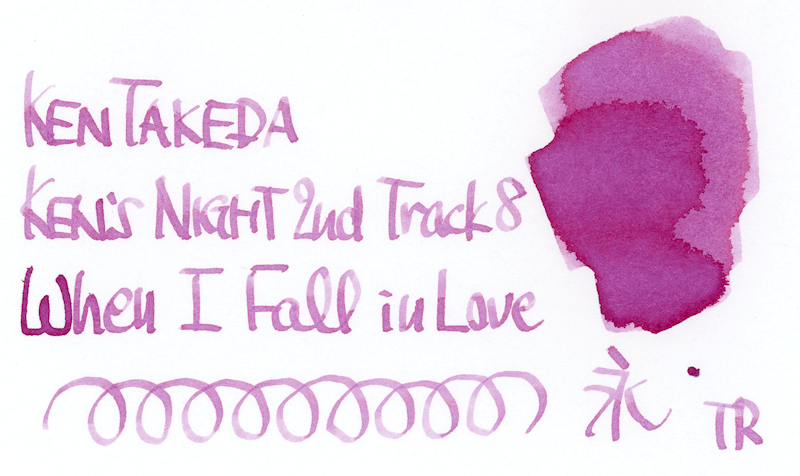 KEN TAKEDA
KEN'S NIGHT 2nd Track 8
When I Fall in Love
永
TR